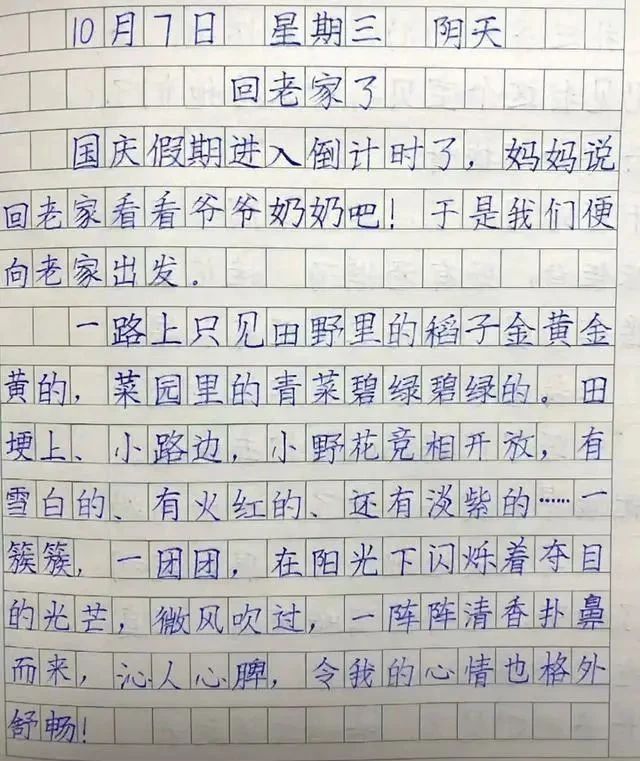 10月7日 星期三 阴天
回老家了
国庆假期进入倒计时了，妈妈说
回老家看看爷爷奶奶吧！于是我们便
向老家出发。
一路上只见田野里的稻子金黄金
黄的，菜园里的青菜碧绿碧绿的。田
埂上、小路边，小野花竞相开放，有
雪白的、有火红的、还有淡紫的……一
簇簇，一团团，在阳光下闪烁着夺目
的光芒，微风吹过，一阵阵清香扑鼻
而来，沁人心脾，令我的心情也格外
舒畅！